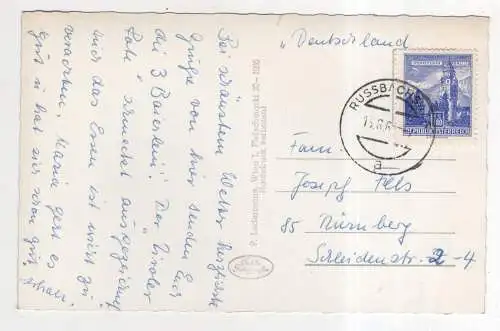 Bei schönstem Wetter herzlichste
Grüße von hier senden Euch
die 3 Bayerlein! Der Tiroler
schmeckt ausgezeichnet
und das Essen ist nicht zu
verachten. Maria geht es
gut u. hat sich schon gut
erholt.
"Deutschland
Fam.
Josef Fels
85 Nürnberg
Scheidenstr. 2-4
RUSSBACHS
a
REPUBLIK ÖSTERREICH
P. Ledermann, Wien I, Fleischmarkt 20-